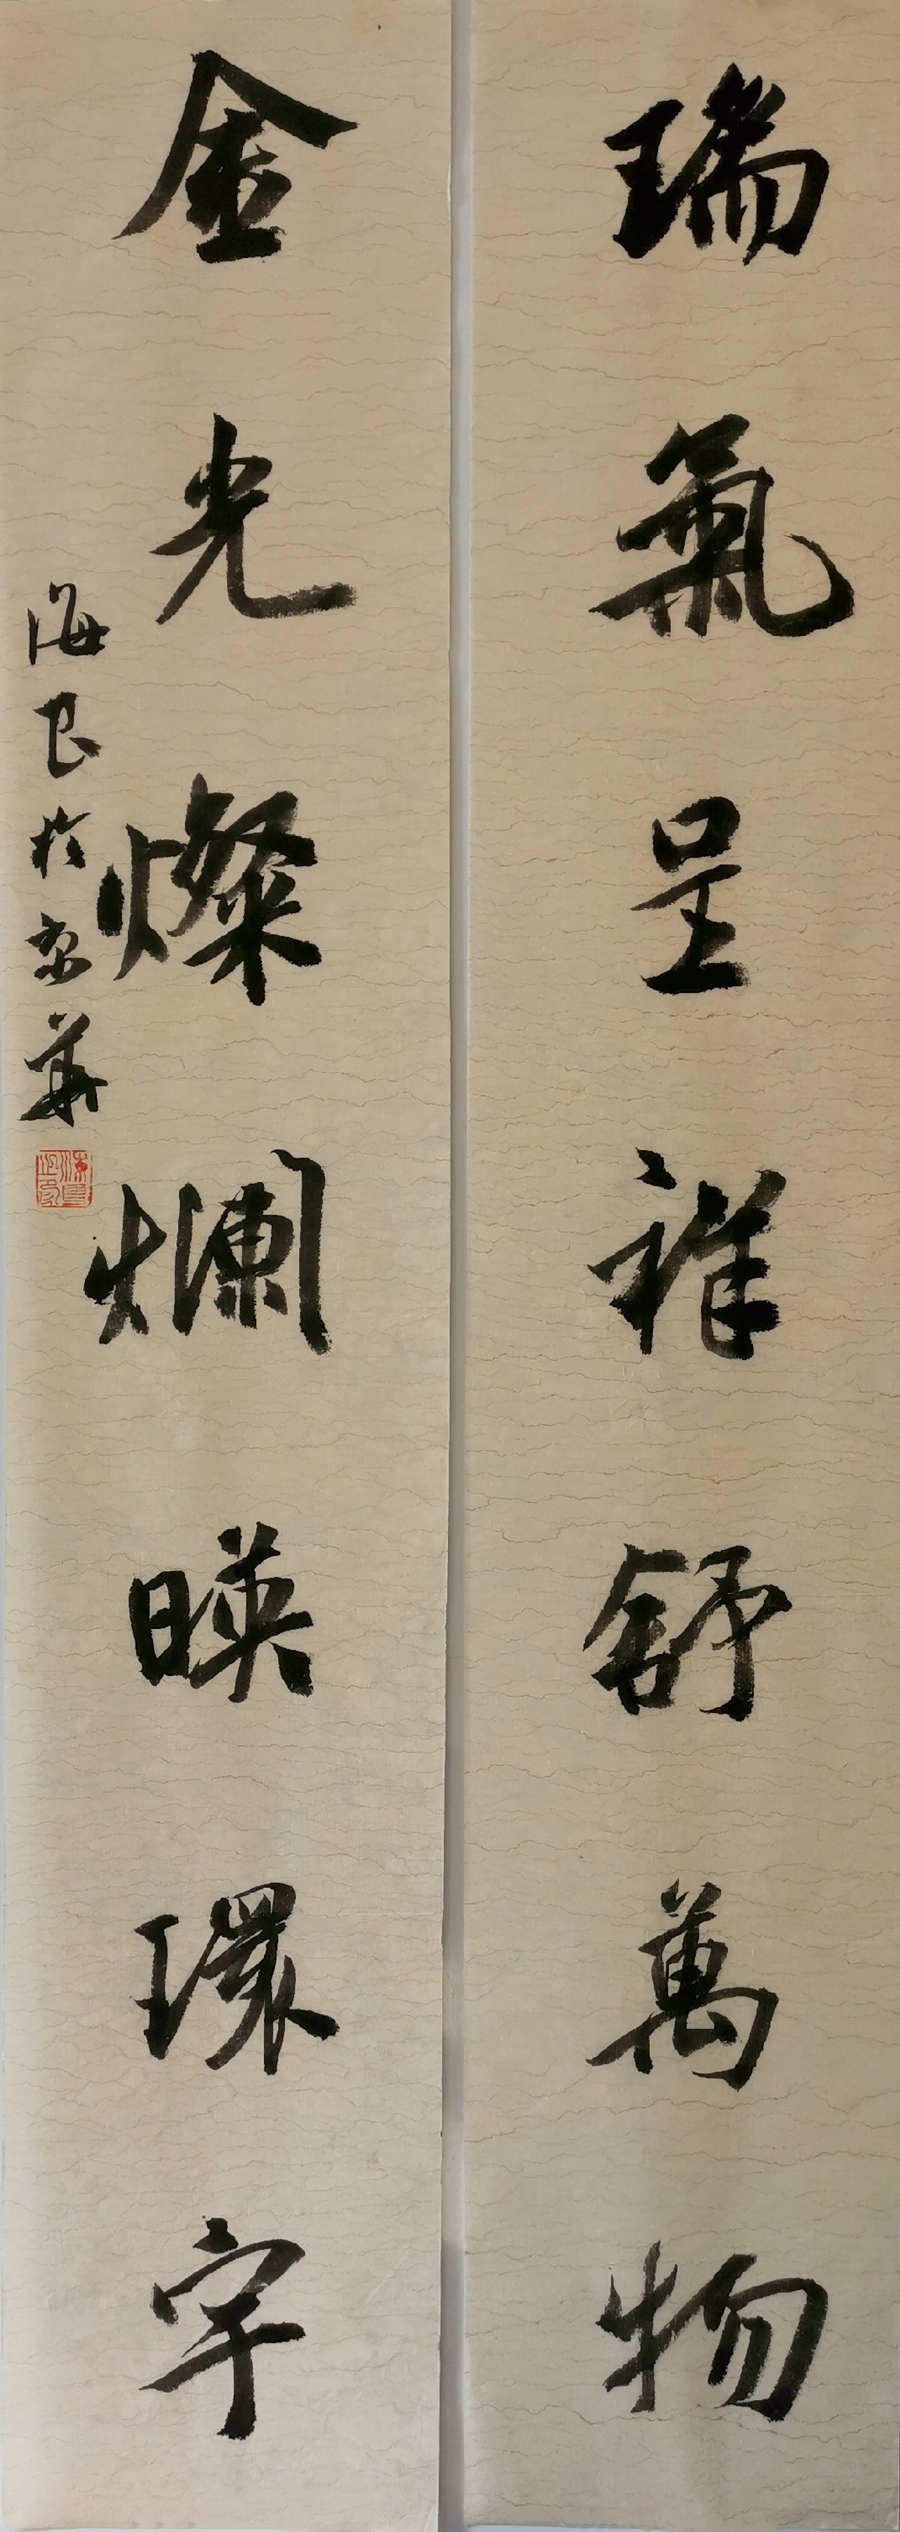 瑞氣呈祥舒萬物
金光燦爛暎環宇
海良於京華